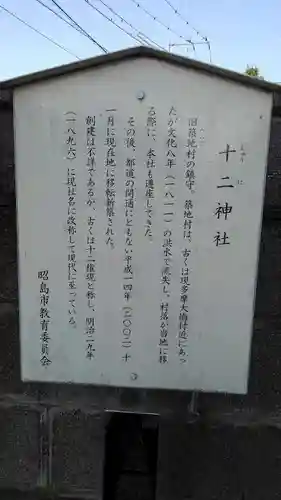 十二神社
旧築地村の鎮守。築地村は、古くは現多摩大橋付近にあっ
たが文化八年(一八一一)の洪水で流失し、村落が当地に移
る際に、本社も遷座してきた。
その後、都道の開通にともない平成一四年(二〇〇二)十
一月に現在地に移転新築された。
創建は不詳であるが、古くは十二権現と称し、明治二九年
(一八九六)に現社名に改称して現代に至っている。
昭島市教育委員会